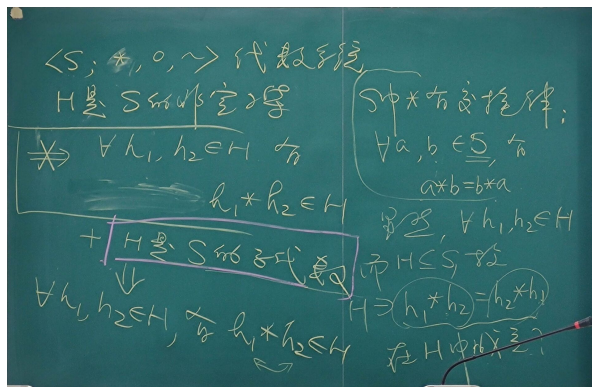 <S; *, o, ~> 代数系统
H是 S的非空子集
⇏ ∀h₁, h₂∈H 有
h₁*h₂∈H
+ H是 S的子代数
⇓
∀h₁, h₂∈H, 有 h₁*h₂∈H
S中*有交换律:
∀a, b∈S, 有
a*b=b*a
∀h₁,h₂∈H
而H⊆S, 故
H∋h₁*h₂=h₂*h₁
在H中有定义?